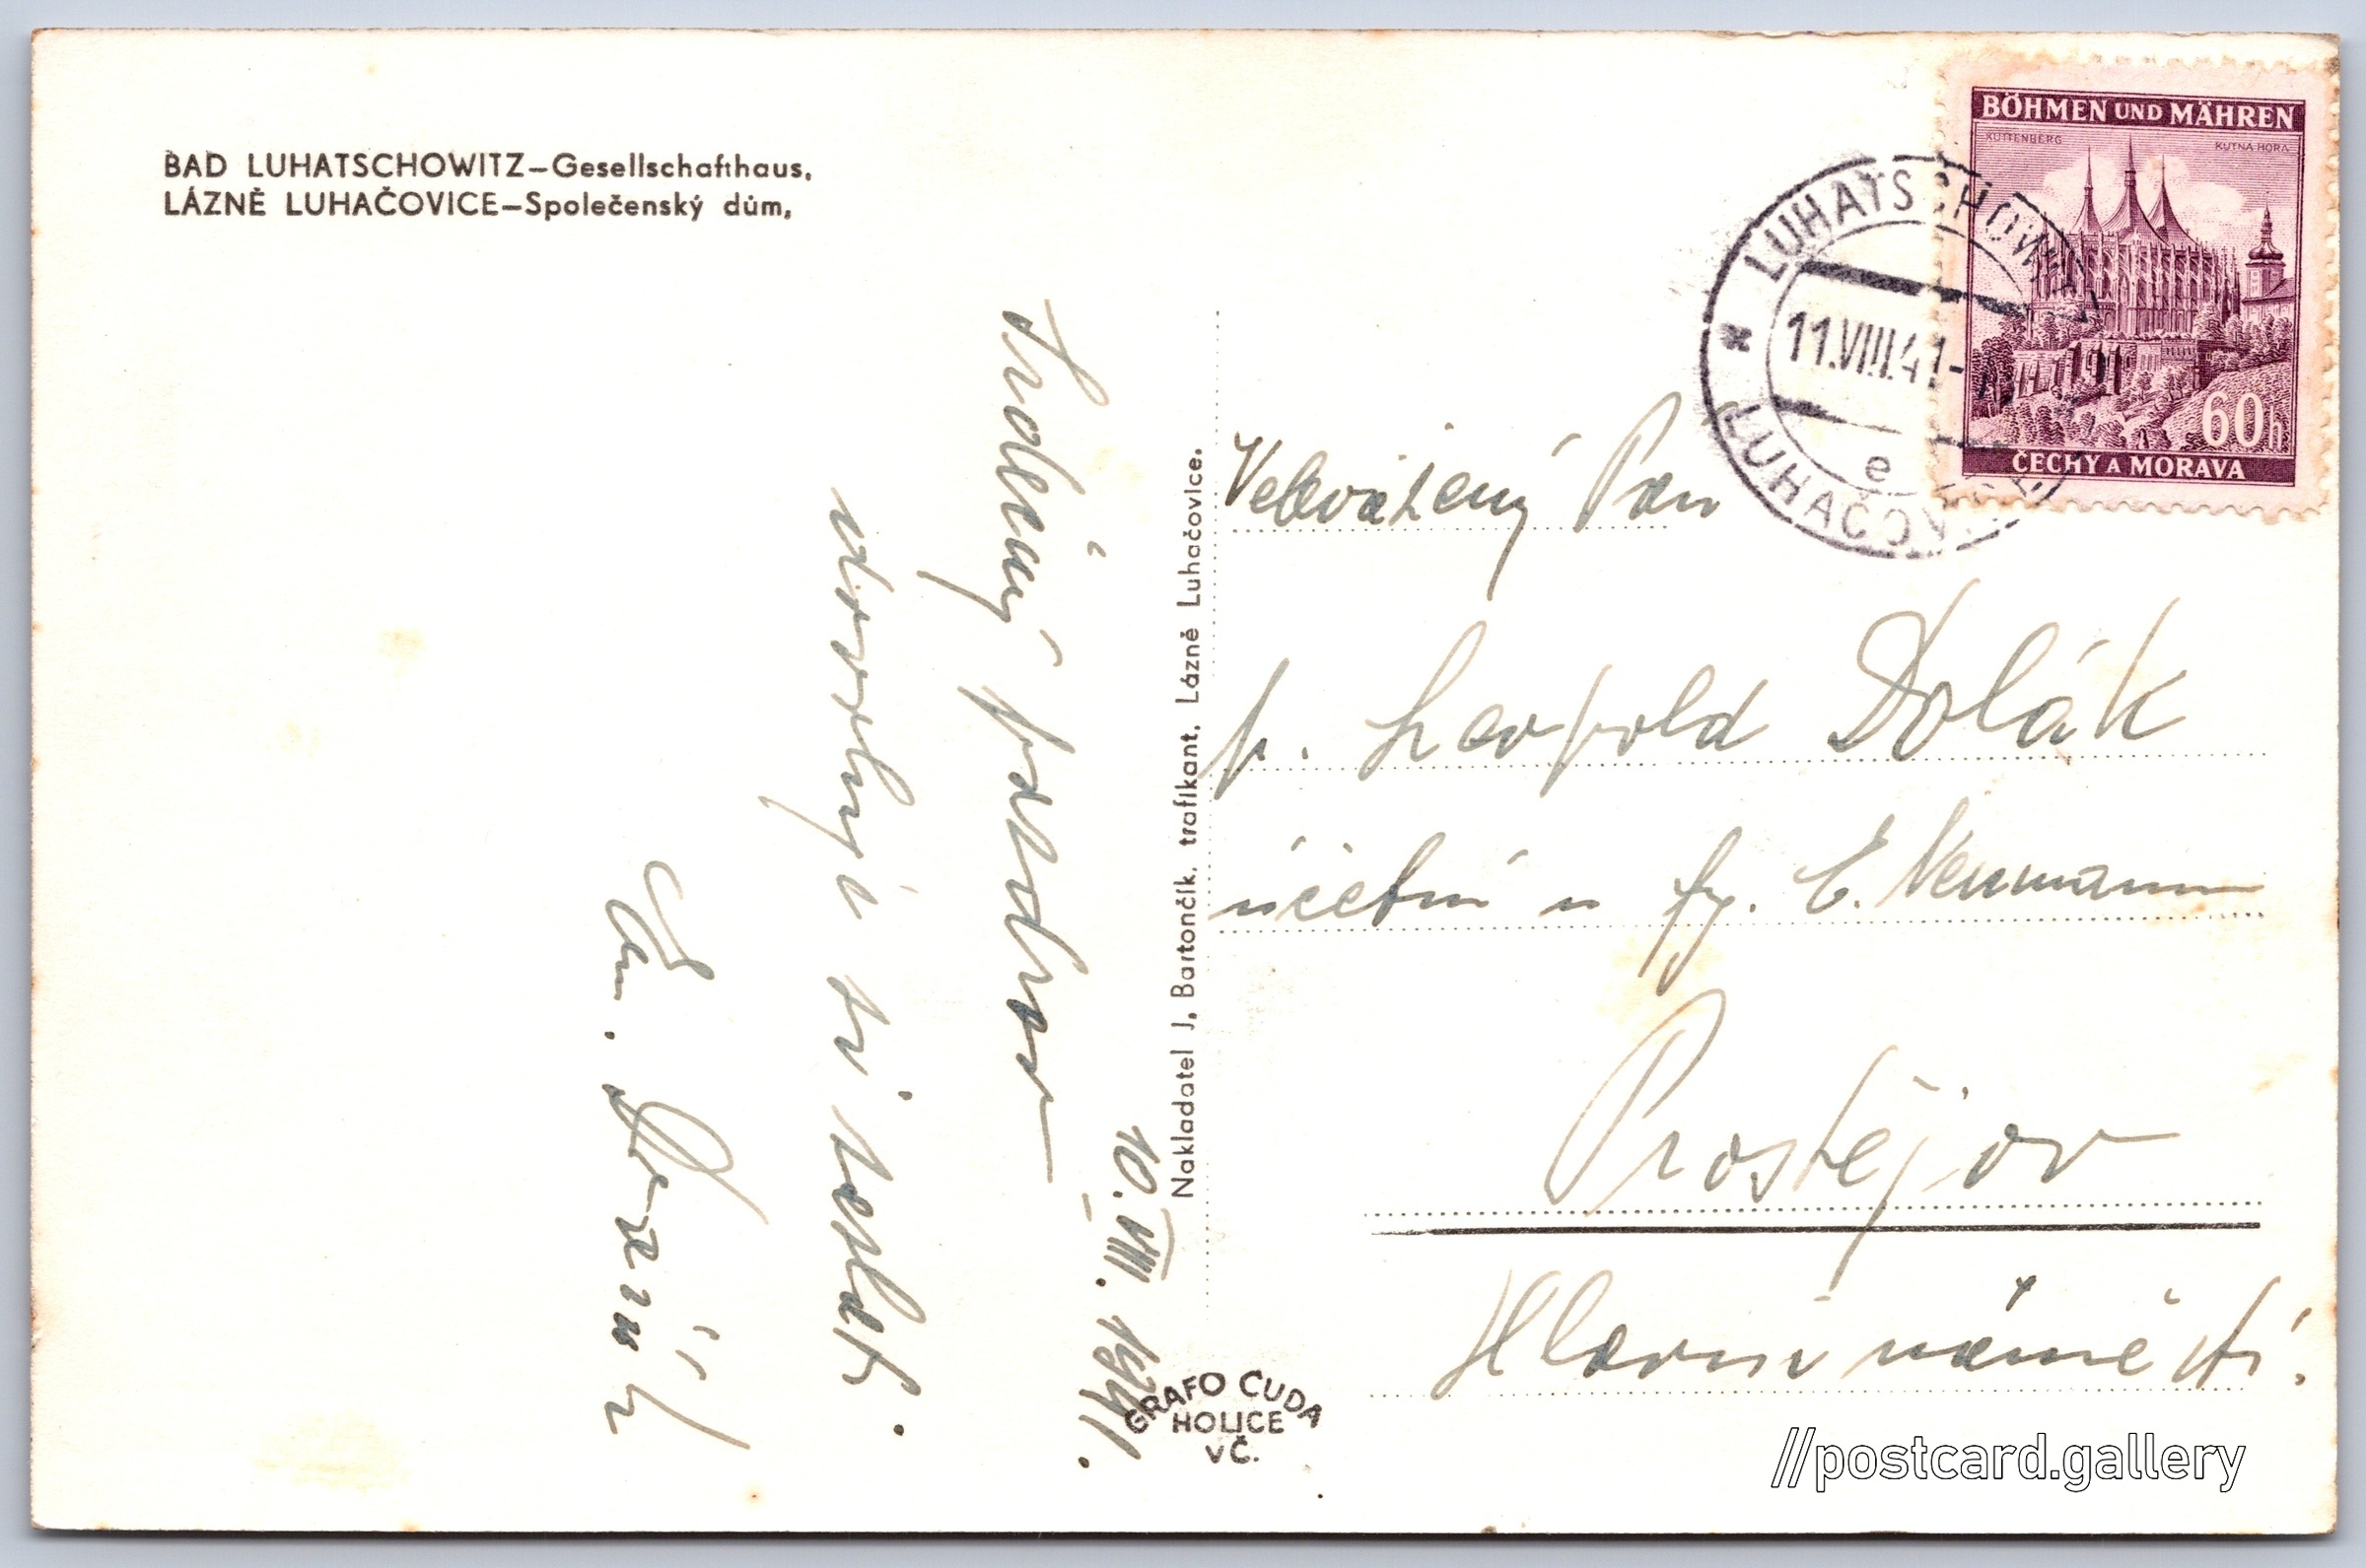 BAD LUHATSCHOWITZ–Gesellschafthaus,
LÁZNĚ LUHAČOVICE–Společenský dům,
BÖHMEN UND MÄHREN
KUTTENBERG
KUTNÁ HORA
60h
ČECHY A MORAVA
LUHATSCHOWITZ
11.VIII.41-
e
LUHAČOVICE
10.VIII.1941.
Srdečný pozdrav
dovoluji si zaslati.
Em.
Nakladatel J. Bartončík, trafikant, Lázně Luhačovice.
Velevážený Pan
p. Leopold Dolák
účetní u fy. E. Neumann
Prostějov
Hlavní náměstí.
GRAFO ČUDA
HOLICE
VČ.
//postcard.gallery